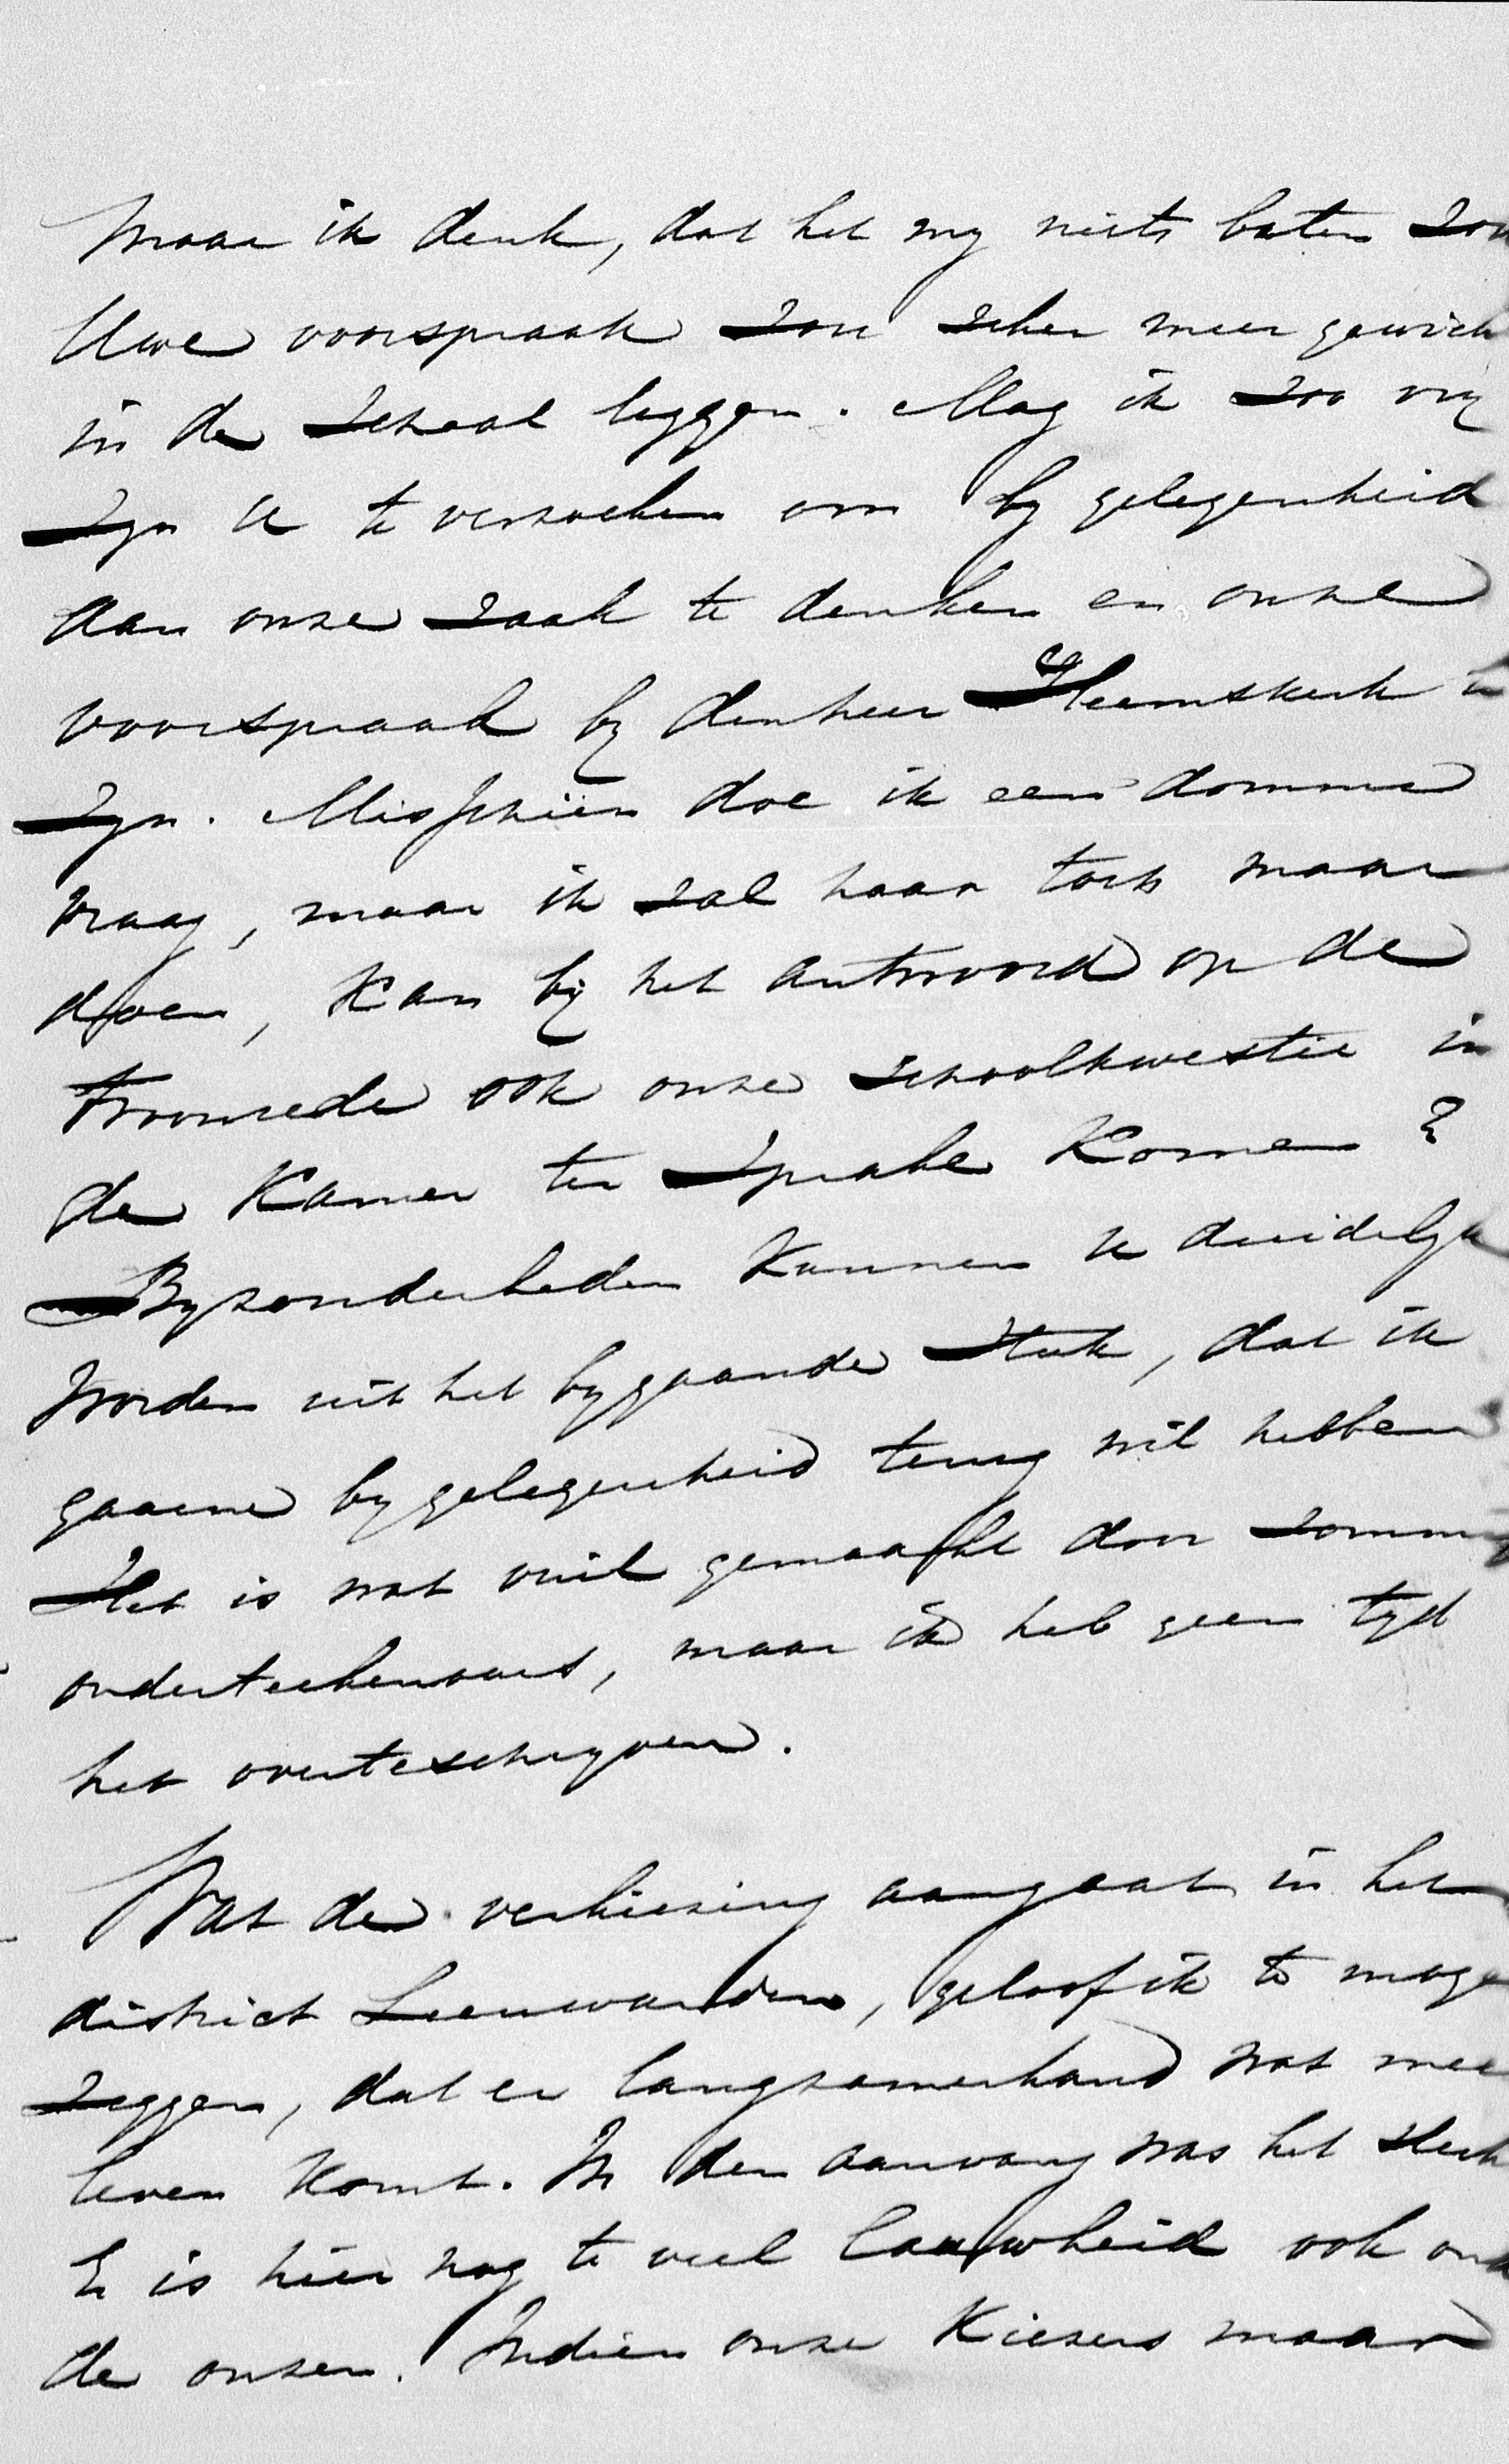 Maar ik denk, dat het my niets baten zou
Uwe voorspraak zou zeker meer gewich
in de schaal leggen. Mag ik zoo vry
zyn U te verzoeken om by gelegenheid
aan onze zaak te denken en onze
voorspraak by den heer Heemskerk te
zyn. Misschien doe ik een domme
vraag, maar ik zal haar toch maar
doen, kan bij het antwoord op de
troonrede ook onze schoolkwestie in
de Kamer ter sprake komen?
Byzonderheden kunnen U duidelyk
worden uit het bygaande stuk, dat ik
gaarne by gelegenheid terug wil hebben
Het is wat vuil gemaakt door sommige
onderteekenaars, maar ik heb geen tyd
het overteschryven.
Wat de verkiezing aangaat in het
district Leeuwarden, geloof ik te moge
zeggen, dat er langzamerhand wat mee
leven komt. In den aanvang was het slech
Er is hier nog te veel lauwheid ook ond
de onzen. Indien onze kiezers maar